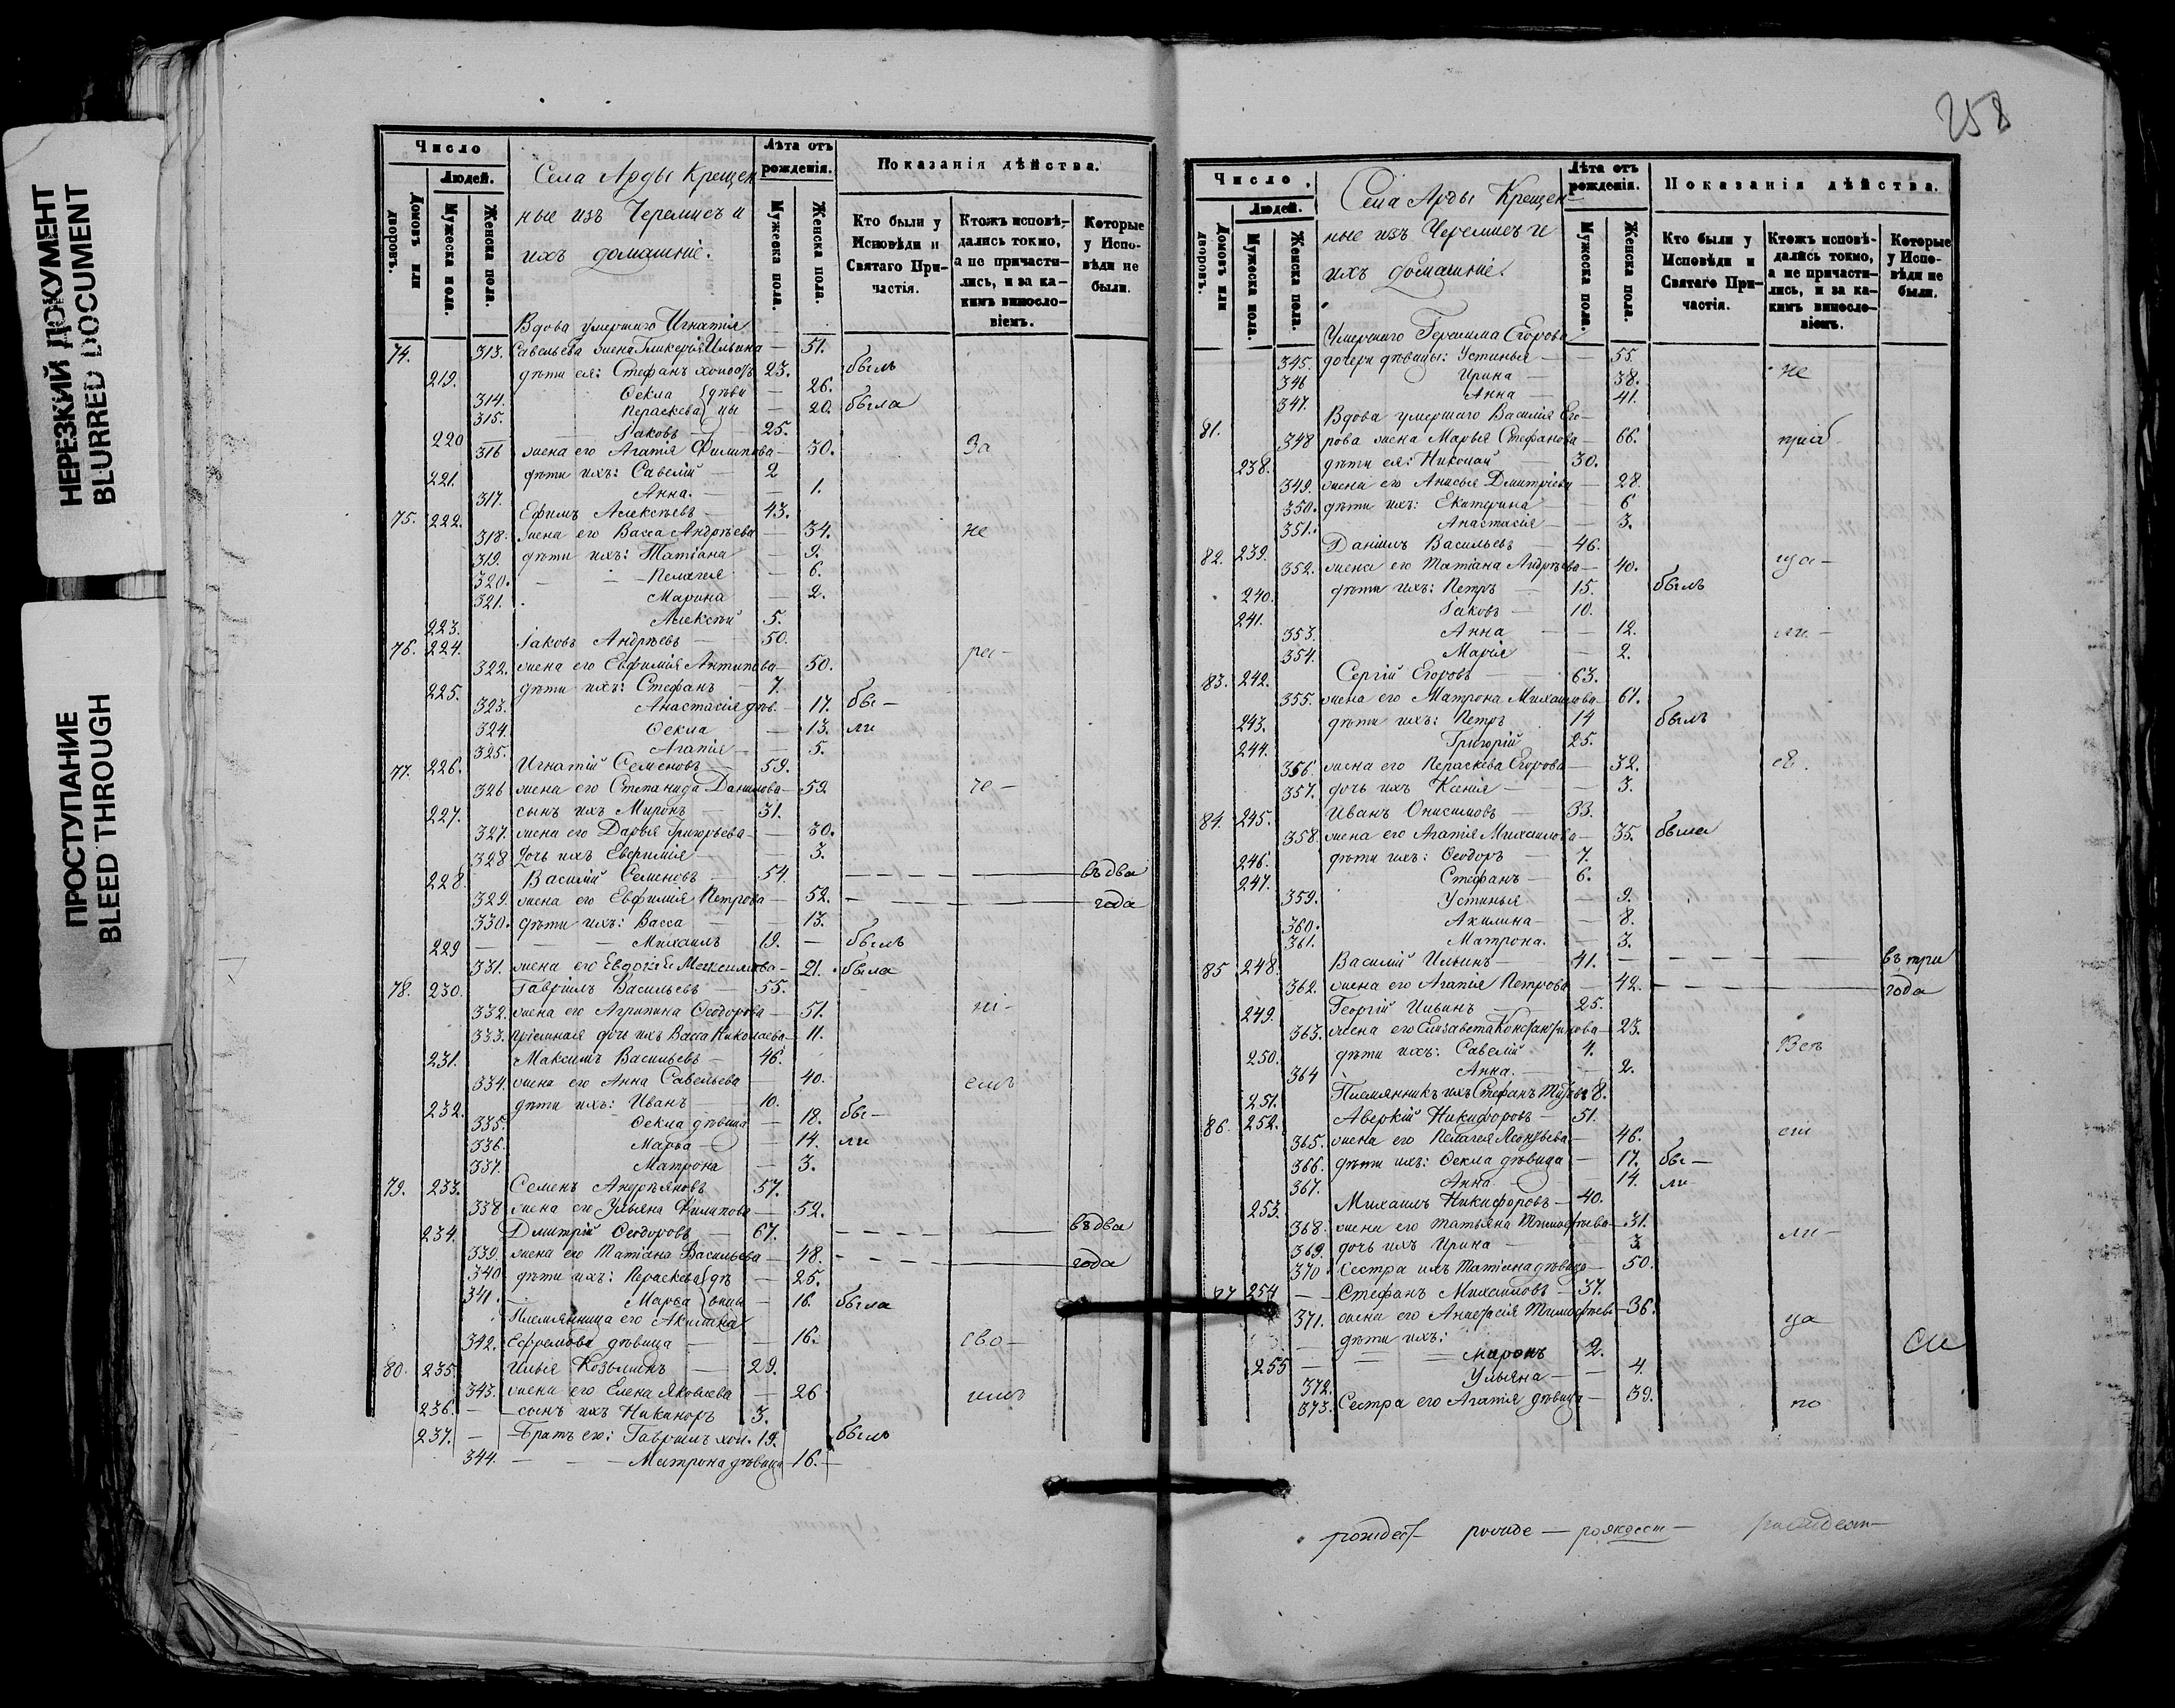 НЕРЕЗКИЙ ДОКУМЕНТ
BLURRED DOCUMENT
ПРОСТУПАНИЕ
BLEED THROUGH
Число
Людей.
Домовъ или дворовъ.
Мужеска пола.
Женска пола.
Села Арды Крещен
ные изъ Черемисъ и
ихъ домашніе.
Лѣта отъ рожденія.
Мужеска пола.
Женска пола.
Показанія дѣйства.
Кто были у Исповѣди и Святаго Причастія.
Ктожъ исповѣдались токмо, а не причастились, и за какимъ винословіемъ.
Которые у Исповѣди не были.
Вдова умершаго Игнатія
74. 313. Савельева жена Гликерія Ильина — 51.
219. дѣти ея: Стефанъ холостъ 23. былъ
314. Ѳекла дѣви — 26.
315. Параскева цы — 20. была
220 Іаковъ — 25.
316 жена его Агапія Филипова — 30. За
221. дѣти ихъ: Савелій — 2
317. Анна. — 1.
75. 222. Ефимъ Алексѣевъ — 43.
318. жена его Васса Андрѣева — 34. не
319. дѣти ихъ: Татіана — 9.
320. — Пелагея — 6.
321. Марона — 2.
223. Алексѣй 5.
76. 224. Іаковъ Андрѣевъ — 50.
322. жена его Евфимія Антипова — 50. ра-
225. дѣти ихъ: Стефанъ — 7.
323. Анастасія дѣв. — 17. бы-
324. Ѳекла — 13. ли
325. Агапія — 5.
77. 226. Игнатій Семеновъ — 59.
326 жена его Степанида Данилова — 59. че-
227. сынъ ихъ Миронъ — 31.
327. жена его Дарья Григорьева — 30.
328 Дочь ихъ Евфимія — 3.
228. Василій Семеновъ — 54. — въ два
329. жена его Евфимія Петрова — 52. — года
330. дѣти ихъ: Васса — 13.
229 — Михаилъ 19. — былъ
331. жена его Евдокія Максимова — 21. была
78. 230. Гавріилъ Васильевъ — 55.
332. жена его Агрипина Ѳеодорова — 51. ні-
333. пріемная дочь ихъ Васса Николаева — 11.
231. Максимъ Васильевъ — 46.
334. жена его Анна Савельева — 40. емъ
232. дѣти ихъ: Иванъ — 10.
335. Ѳекла дѣвица — 18. бы-
336. Марѳа — 14. ли
337. Матрона — 3.
79. 233. Семенъ Андрѣяновъ 57.
338 жена его Ульяна Филипова — 52.
234. Дмитрій Ѳеодоровъ — 67. — въ два
339. жена его Татіана Васильева — 48. — года
340 дѣти ихъ: Параскева дѣ — 25.
341. Марѳа вицы — 16. была
Племянница его Акилина
342. Ефремова дѣвица — 16. сво-
80. 235. Илья Козьминъ — 29.
343. жена его Елена Яковлева — 26 имъ
236. — сынъ ихъ Никаноръ 3.
237. — Братъ его: Гавріилъ хол. 19. былъ
344. — Матрона дѣвица 16. —
258
Число
Людей.
Домовъ или дворовъ.
Мужеска пола.
Женска пола.
Села Арды Крещен-
ные изъ Черемисъ и
ихъ домашніе.
Лѣта отъ рожденія.
Мужеска пола.
Женска пола.
Показанія дѣйства.
Кто были у Исповѣди и Святаго Причастія.
Ктожъ исповѣдались токмо, а не причастились, и за какимъ винословіемъ.
Которые у Исповѣди не были.
Умершаго Герасима Егорова
345. дочери дѣвицы: Устинья — 55. не
346 Ирина — 38.
347. Анна — 41.
Вдова умершаго Василія Его-
81. 348 рова жена Марья Стефанова — 66. приб
238. дѣти ея: Николай — 30.
349. жена его Анисья Дмитріева — 28.
350. дѣти ихъ: Екатерина — 6
351. Анастасія — 3.
82. 239. Даніилъ Васильевъ — 46.
352. жена его Татіана Андрѣева — 40. ца-
240. дѣти ихъ: Петръ — 15. былъ
241. Іаковъ — 10.
353. Анна — 12. ли-
354. Марія — 2.
83. 242. Сергій Егоровъ — 63.
355. жена его Матрона Михаилова — 61.
243. дѣти ихъ: Петръ 14 былъ
244. Григорій 25.
356. жена его Параскева Егорова — 32.
357. дочь ихъ Ксенія — 3.
84. 245. Иванъ Онисимовъ — 33.
358. жена его Агапія Михаилова — 35. были
246. дѣти ихъ: Ѳеодоръ — 7.
247. Стефанъ — 6.
359. Устинья — 9.
360. Акилина — 8.
361. Матрона. — 3.
85 248. Василій Ильинъ — 41. — въ три
362. жена его Агапія Петрова — 42. — года
249. Георгій Ильинъ — 25.
363. жена его Елизавета Константинова — 23.
250. дѣти ихъ: Савелій 4.
364 Анна. — 2.
251. Племянникъ ихъ Стефанъ 8.
86. 252. Аверкій Никифоровъ 51.
365. жена его Пелагея Леонтьева — 46.
366. дѣти ихъ: Ѳекла дѣвица — 17. бы-
367. Анна — 14. ли
253. Михаилъ Никифоровъ — 40.
368. жена его Татьяна Тимоѳѣева — 31. ли-
369. дочь ихъ Ирина — 3
370 Сестра ихъ Татіана дѣвица — 50.
87 254 — Стефанъ Михаиловъ — 37.
371. жена его Анастасія Тимоѳѣева — 36. ца
дѣти ихъ:
255 — Миронъ 2.
372. Ульяна — 4.
373. Сестра его Агапія дѣвица — 39. по